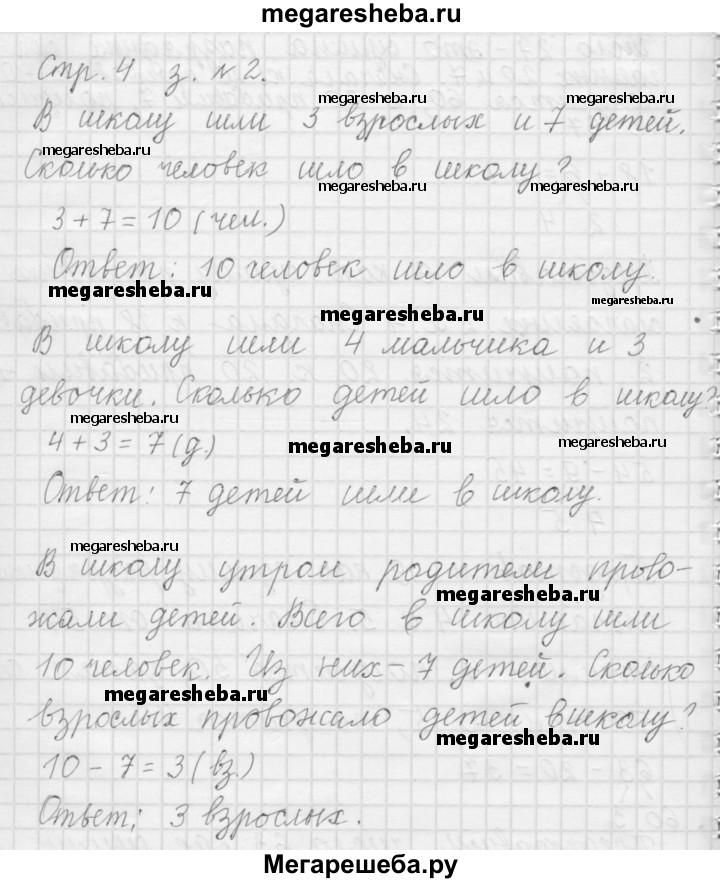 megaresheba.ru
Стр. 4 з. №2.
megaresheba.ru megaresheba.ru
В школу шли 3 взрослых и 7 детей.
megaresheba.ru
Сколько человек шло в школу?
megaresheba.ru megaresheba.ru
3 + 7 = 10 (чел.)
Ответ: 10 человек шло в школу.
megaresheba.ru megaresheba.ru
megaresheba.ru
В школу шли 4 мальчика и 3
девочки. Сколько детей шло в школу?
megaresheba.ru
4 + 3 = 7 (д.)
megaresheba.ru megaresheba.ru
Ответ: 7 детей шли в школу.
megaresheba.ru
В школу утром родители прово-
megaresheba.ru
жали детей. Всего в школу шли
10 человек. Из них - 7 детей. Сколько
megaresheba.ru
взрослых провожало детей в школу?
megaresheba.ru
10 - 7 = 3 (вз.)
Ответ: 3 взрослых.
Мегарешеба.ру